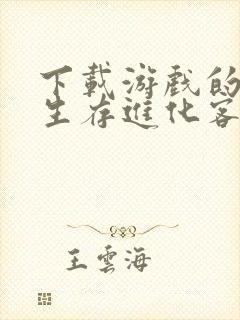 下載游戲的
生存進化客
王雲海